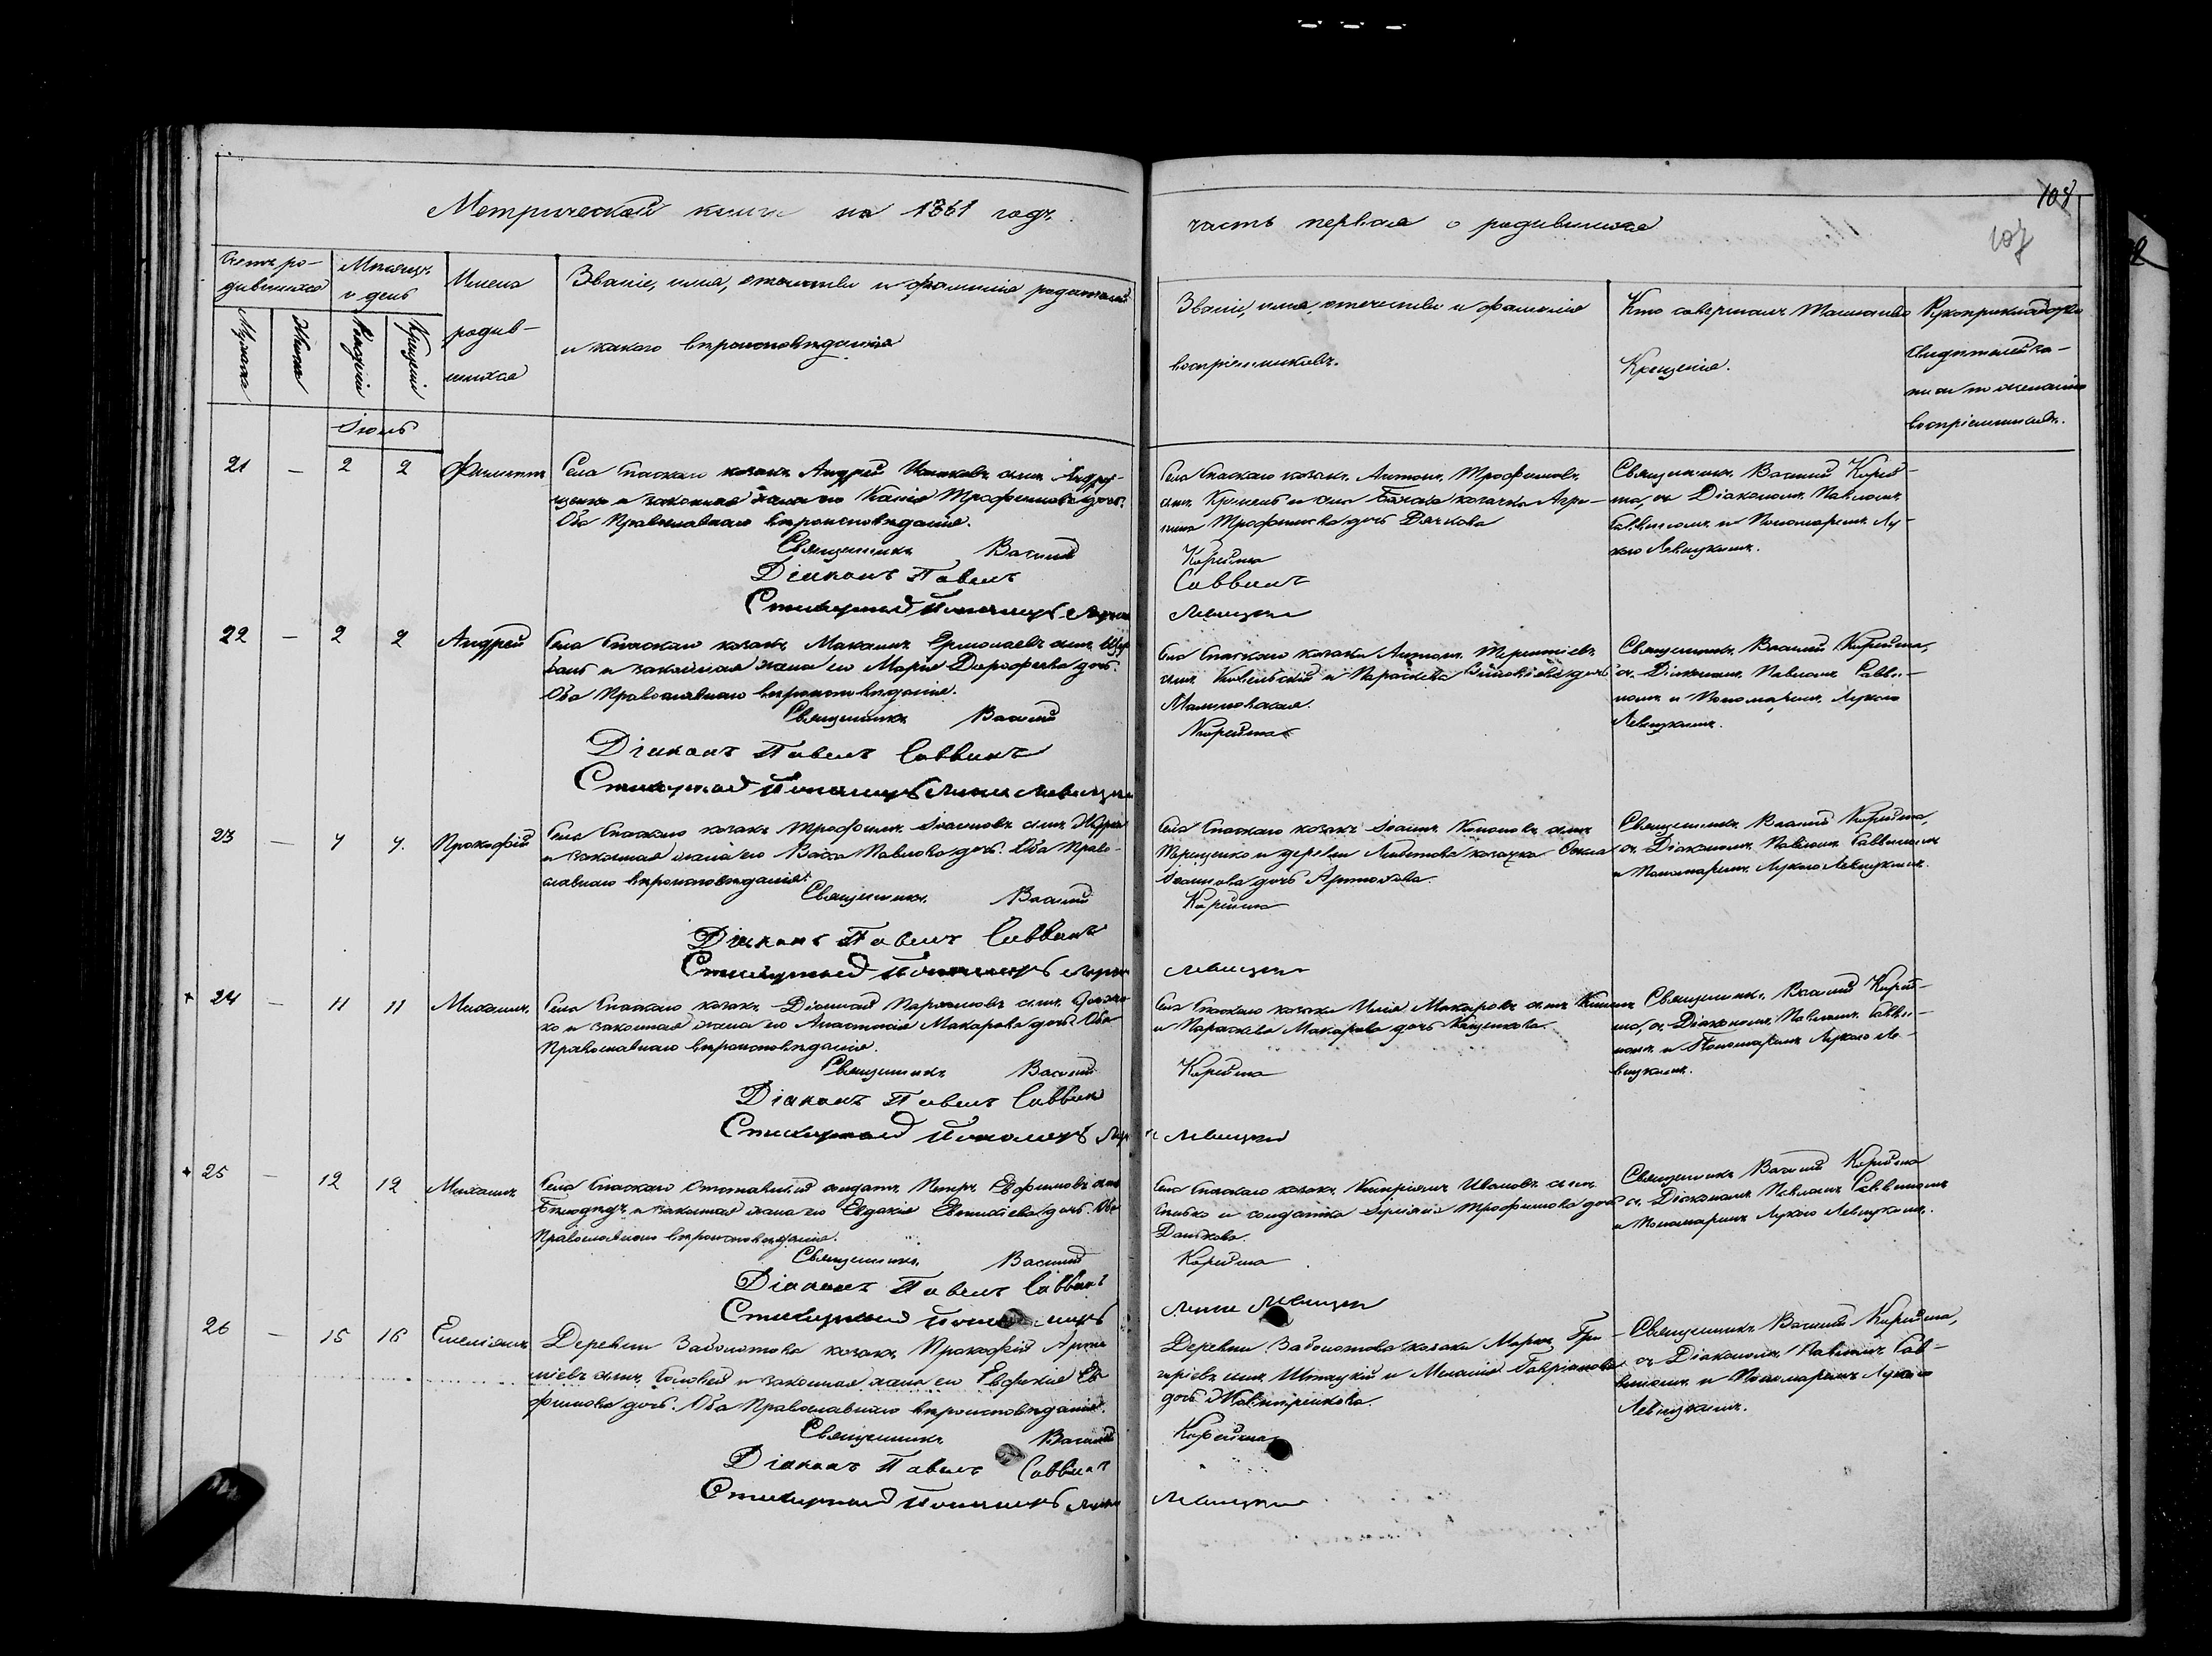 108
107
Метрической книги на 1861 годъ
часть первая о родившихся
Счетъ ро-
дившихся
Мѣсяцъ
и день
Имена
родив-
шихся
Званіе, имя, отчество и фамилія родителей
и какого вѣроисповѣданія
Званіе, имя, отчество и фамилія
воспріемниковъ.
Кто совершалъ Таинство
Крещенія.
Рукоприкладство
свидѣтелей за-
писи по желанію
Мужска
Женска
Рожденія
Крещенія
Іюль
21 — 2 2 Филиппъ
Села Спаскаго козакъ Андрей сынъ Андру-
щенко и законная жена его Трофимова дочь.
Оба Православнаго вѣроисповѣданія.
Священникъ Василій
Діаконъ Павелъ
Стихарный Пономарь
Села Спаскаго козакъ Антонъ Трофимовъ
сынъ и козачка Агри-
пина Трофимова дочь Дячкова
Корейша
Саввинъ
Левицкій
Священникъ Василій Корей-
ша, съ Діакономъ Павломъ
Саввинымъ и Пономаремъ Лу-
кою Левицкимъ.
22 — 2 2 Андрей
Села Спаскаго козакъ Максимъ Ермолаевъ сынъ
и законная жена его Марія Дорофеева дочь.
Оба Православнаго вѣроисповѣданія.
Священникъ Василій
Діаконъ Павелъ Саввинъ
Стихарный Пономарь Лука Левицкій
Села Спаскаго козакъ Антонъ Терентіевъ
сынъ и Параскева дочь
Малиновская.
Корейша
Священникъ Василій Корейша,
съ Діакономъ Павломъ Савви-
нымъ и Пономаремъ Лукою
Левицкимъ.
23 — 7 7. Прокофій
Села Спаскаго козакъ Трофимъ Іоанновъ сынъ
и законная жена его Васса Павлова дочь. Оба Право-
славнаго вѣроисповѣданія.
Священникъ Василій
Діаконъ Павелъ Саввинъ
Стихарный Пономарь
Села Спаскаго козакъ Іоаннъ Кононовъ сынъ
Терещенко и деревни козачка
Іоаннова дочь
Корейша
Левицкій
Священникъ Василій Корейша,
съ Діакономъ Павломъ Саввинымъ
и Пономаремъ Лукою Левицкимъ.
24 — 11 11 Михаилъ
Села Спаскаго козакъ сынъ
и законная жена его Анастасія Макарова дочь. Оба
Православнаго вѣроисповѣданія.
Священникъ Василій
Діаконъ Павелъ Саввинъ
Стихарный Пономарь
Села Спаскаго козакъ Илія Макаровъ сынъ
и Параскева Макарова дочь
Корейша
Левицкій
Священникъ Василій Корей-
ша, съ Діакономъ Павломъ Савви-
нымъ и Пономаремъ Лукою Ле-
вицкимъ.
25 — 12 12 Михаилъ
Села Спаскаго отставный солдатъ Петръ Евфимовъ сынъ
и законная жена его Евдокія дочь. Оба
Православнаго вѣроисповѣданія.
Священникъ Василій
Діаконъ Павелъ Саввинъ
Стихарный Пономарь
Села Спаскаго козакъ Кипріянъ Ивановъ сынъ
и солдатка Трофимова дочь
Данькова.
Корейша
Лука Левицкій
Священникъ Василій Корейша
съ Діакономъ Павломъ Саввинымъ
и Пономаремъ Лукою Левицкимъ.
26 — 15 16 Емеліянъ
Деревни Заболотова козакъ Прокофій
сынъ и законная жена его Евфимія Ев-
фимова дочь. Оба Православнаго вѣроисповѣданія.
Священникъ Василій
Діаконъ Павелъ Саввинъ
Стихарный Пономарь
Деревни Заболотова козакъ Маркъ Гри-
горіевъ сынъ и Меланія
дочь
Корейша
Левицкій
Священникъ Василій Корейша,
съ Діакономъ Павломъ Сав-
винымъ и Пономаремъ Лукою
Левицкимъ.